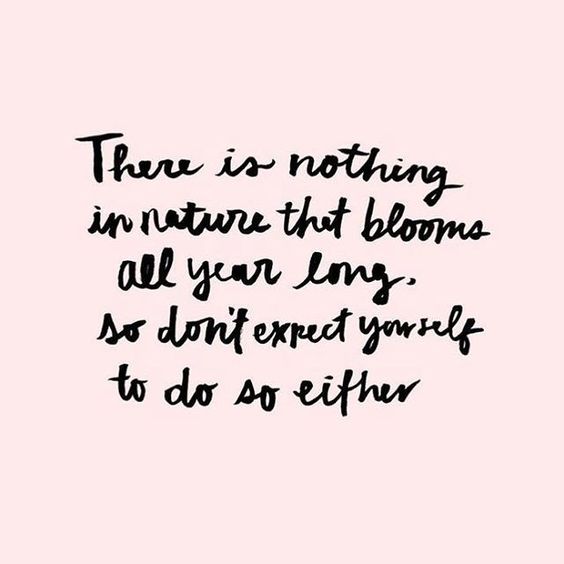 There is nothing
in nature that blooms
all year long.
so don't expect yourself
to do so either